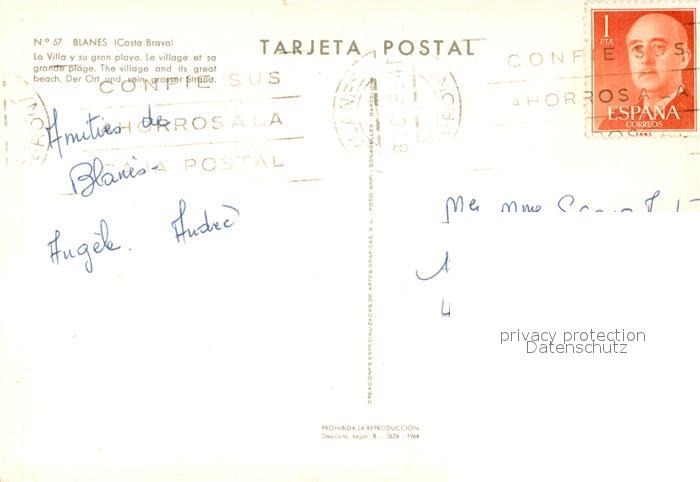 Nº 57 BLANES (Costa Brava)
La Villa y su gran playa. Le village et sa
grande plage. The village and its great
beach. Der Ort und sein grosser Strand.
TARJETA POSTAL
CONFIE SUS
AHORROS A LA
CAJA POSTAL
CONFIE SUS
AHORROS A LA
1
PTA
ESPAÑA
CORREOS
Amitiés de
Blanès-
Angèle. André
CREACIONES ESPECIALIZADAS DE ARTES GRAFICAS, S. L.
BARCELONA
Mme
privacy protection
Datenschutz
PROHIBIDA LA REPRODUCCION
Depósito Legal B - 3624 - 1964